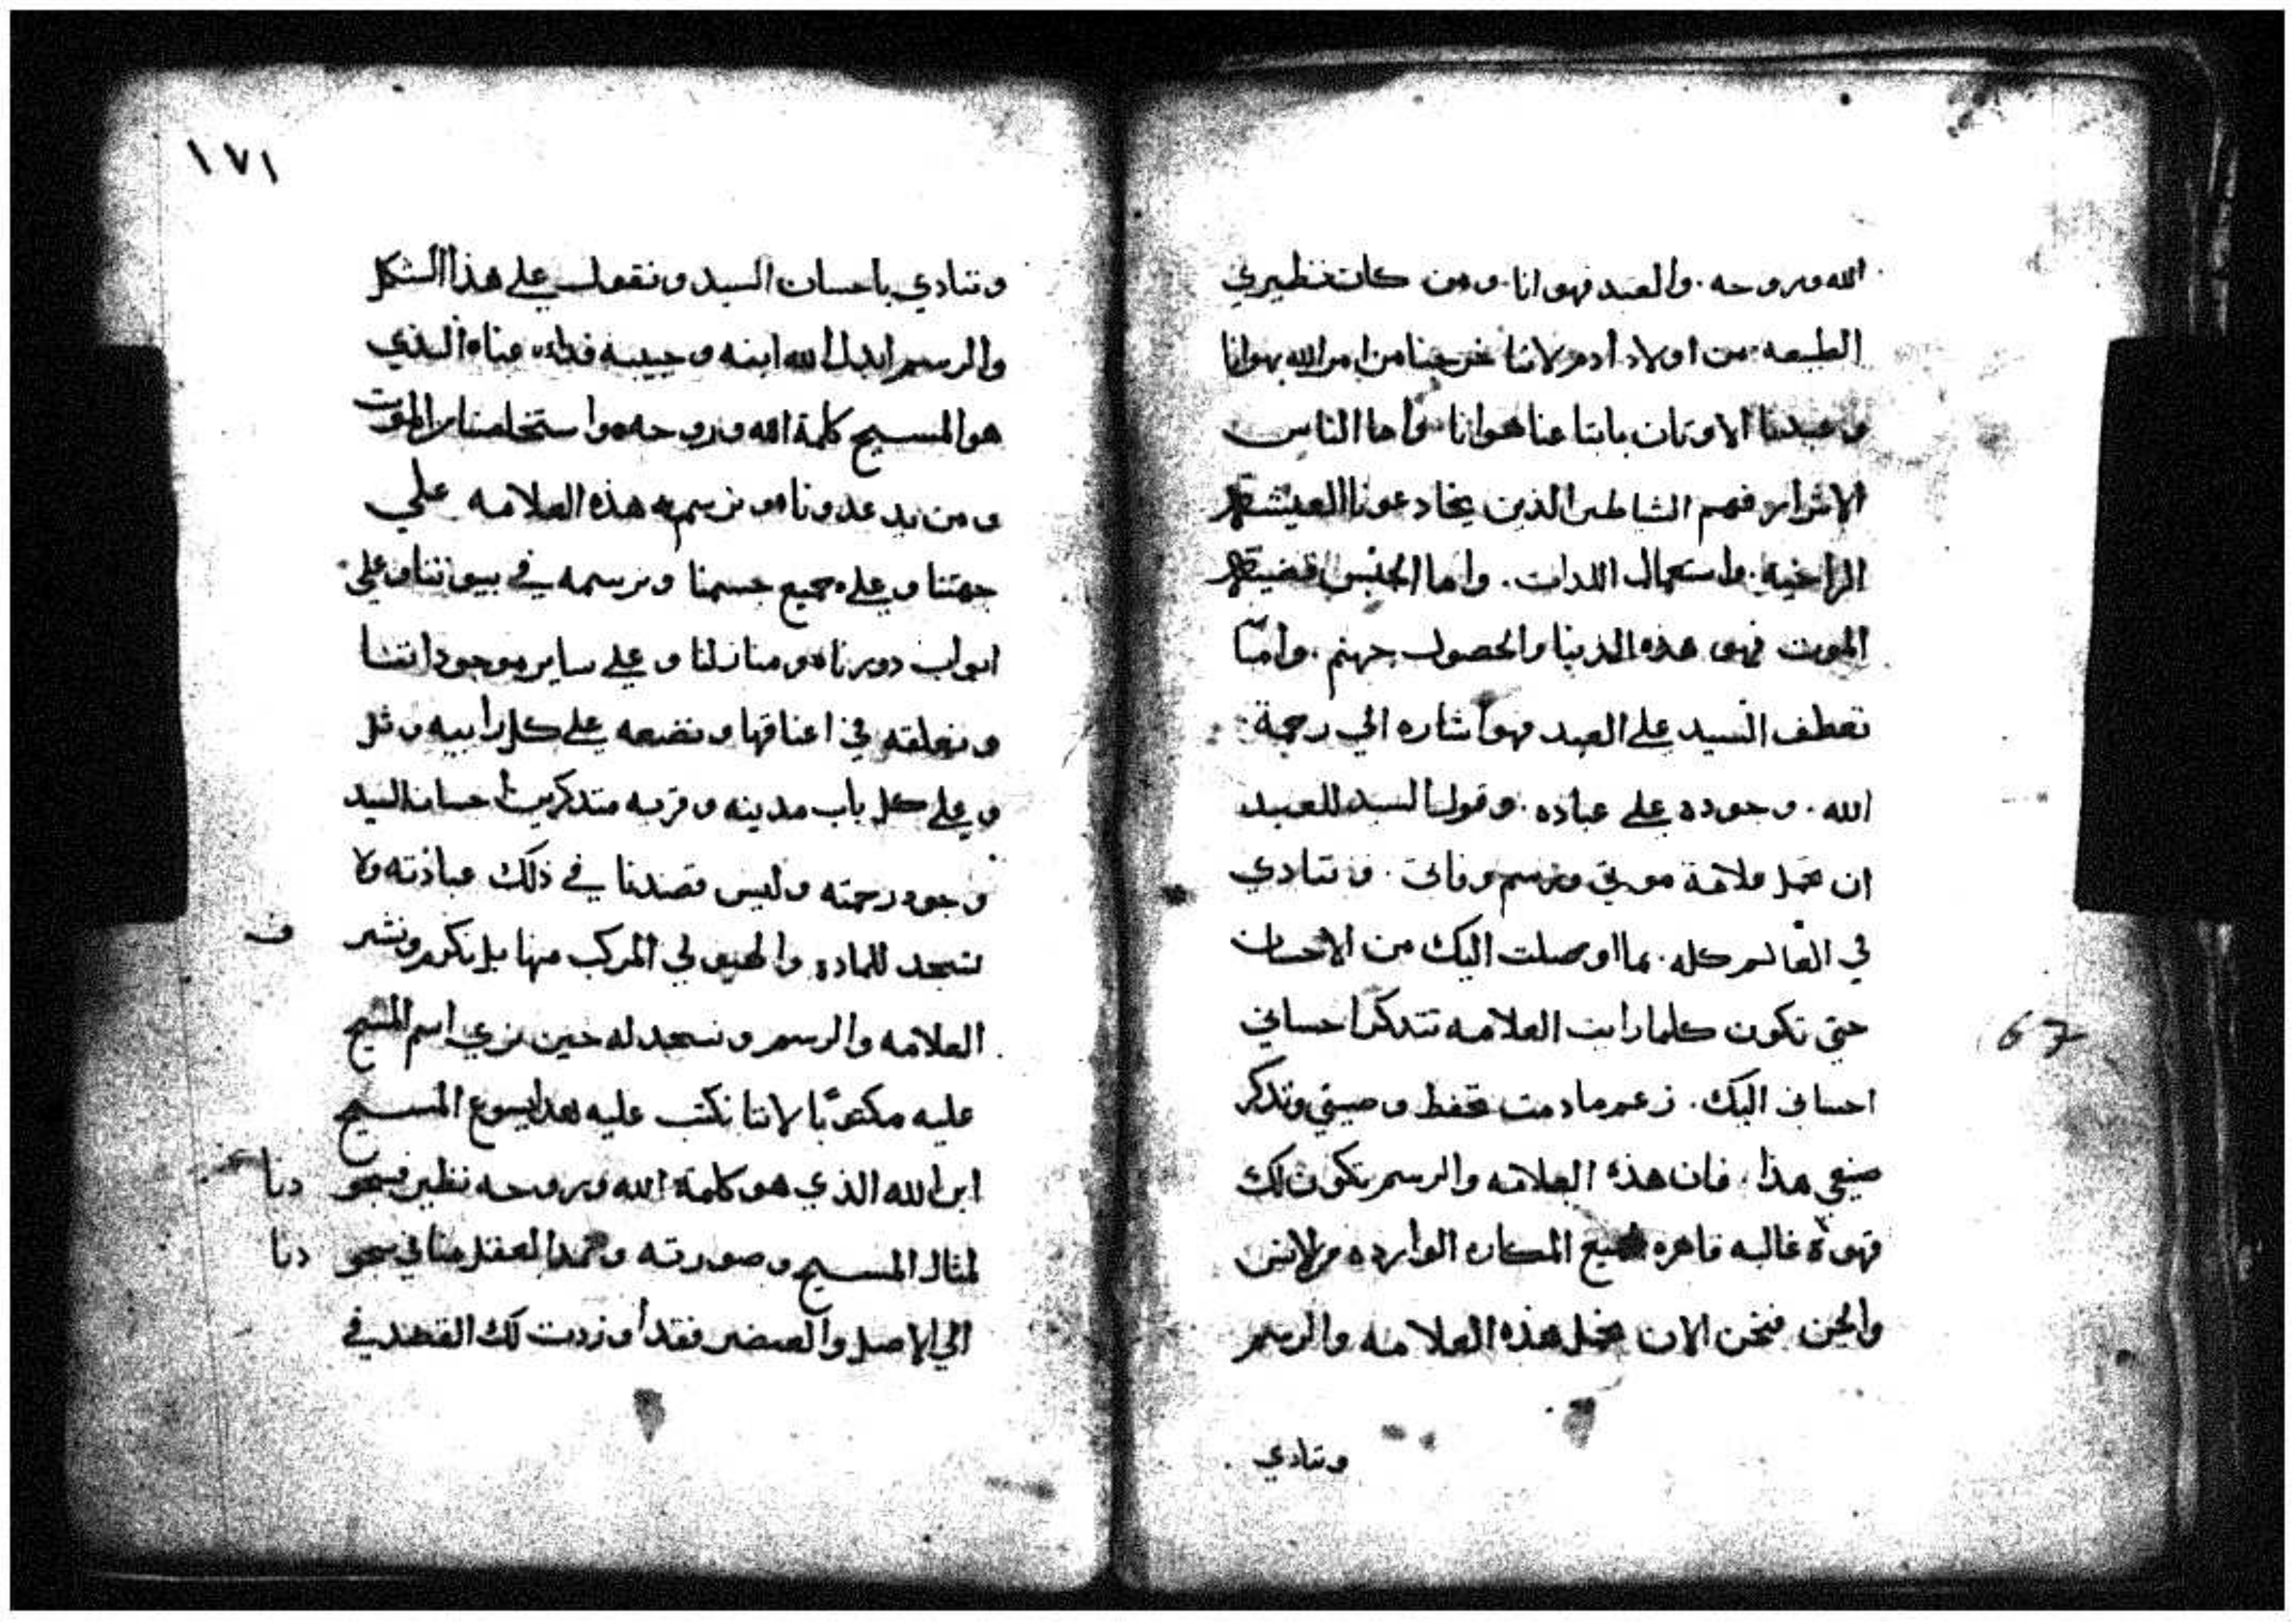 الله وروحه. والعبد فهو انا. ومن كان نظيري
الطبيعه من اولاد أدم لاننا خرجنا من امر الله بهوانا
وعبدنا الاوتان باتباعنا هوانا. وأما الناس
الاشرار فهم الشياطين الذين يخادعونا
الراخيه. واستعمال اللدات. واما الحبس
الموت فهو هذه الدنيا والحصول جهنم. وامّا
تعطف السيد على العبد فهو أشاره الي رحمة
الله. وجوده علي عباده. وقول السيد للعبد
ان تحمل علامة موتي وترسم وفاتي. وتنادي
في العالم كله. بما اوصلت اليك من الاحسان
حتي تكون كلما رايت العلامه تتدكر احساني
احساني اليك. زعم مادمت تحفظ وصيتي وتدكر
صنيعي هذا. فان هذه العلامه والرسم تكون لك
قوة غالبه قاهره لجميع المكاره الوارده من الانس
والجن فنحن الان نحمل هذه العلامه والرسم
وتنادي
67
١٧١
وتنادي باحسان السيد ونقول علي هذا الشكل
والرسم ابدل الله ابنه وحبيبه فداء عنا الذي
هو المسيح كلمة الله وروحه واستخلصنا من الموت
ومن يد عدونا ونرسم هذه العلامه علي
جبهتنا وعلي جميع جسمنا ونرسمه في بيوتنا وعلي
ابواب دورنا ومنازلنا وعلي ساير موجوداتنا
ونعلقه في اعناقها ونضعه علي كل رابيه وتل
وعلي كل باب مدينه وقريه متدكرين احسان السيد
وجود رحمته وليس قصدنا في ذلك عبادته ولا
نسجد للماده والهيولي المركب منها بل نكرم ونشر ف
العلامه والرسم ونسجد له حين نري اسم المسيح
عليه مكتوبًا لاننا نكتب عليه هدا يسوع المسيح
ابن الله الذي هو كلمة الله وروحه نظير سجو دنا
لمثال المسيح وصورته العقل منا في سجو دنا
الي الاصل والعنصر فقد أوردت لك القصد في